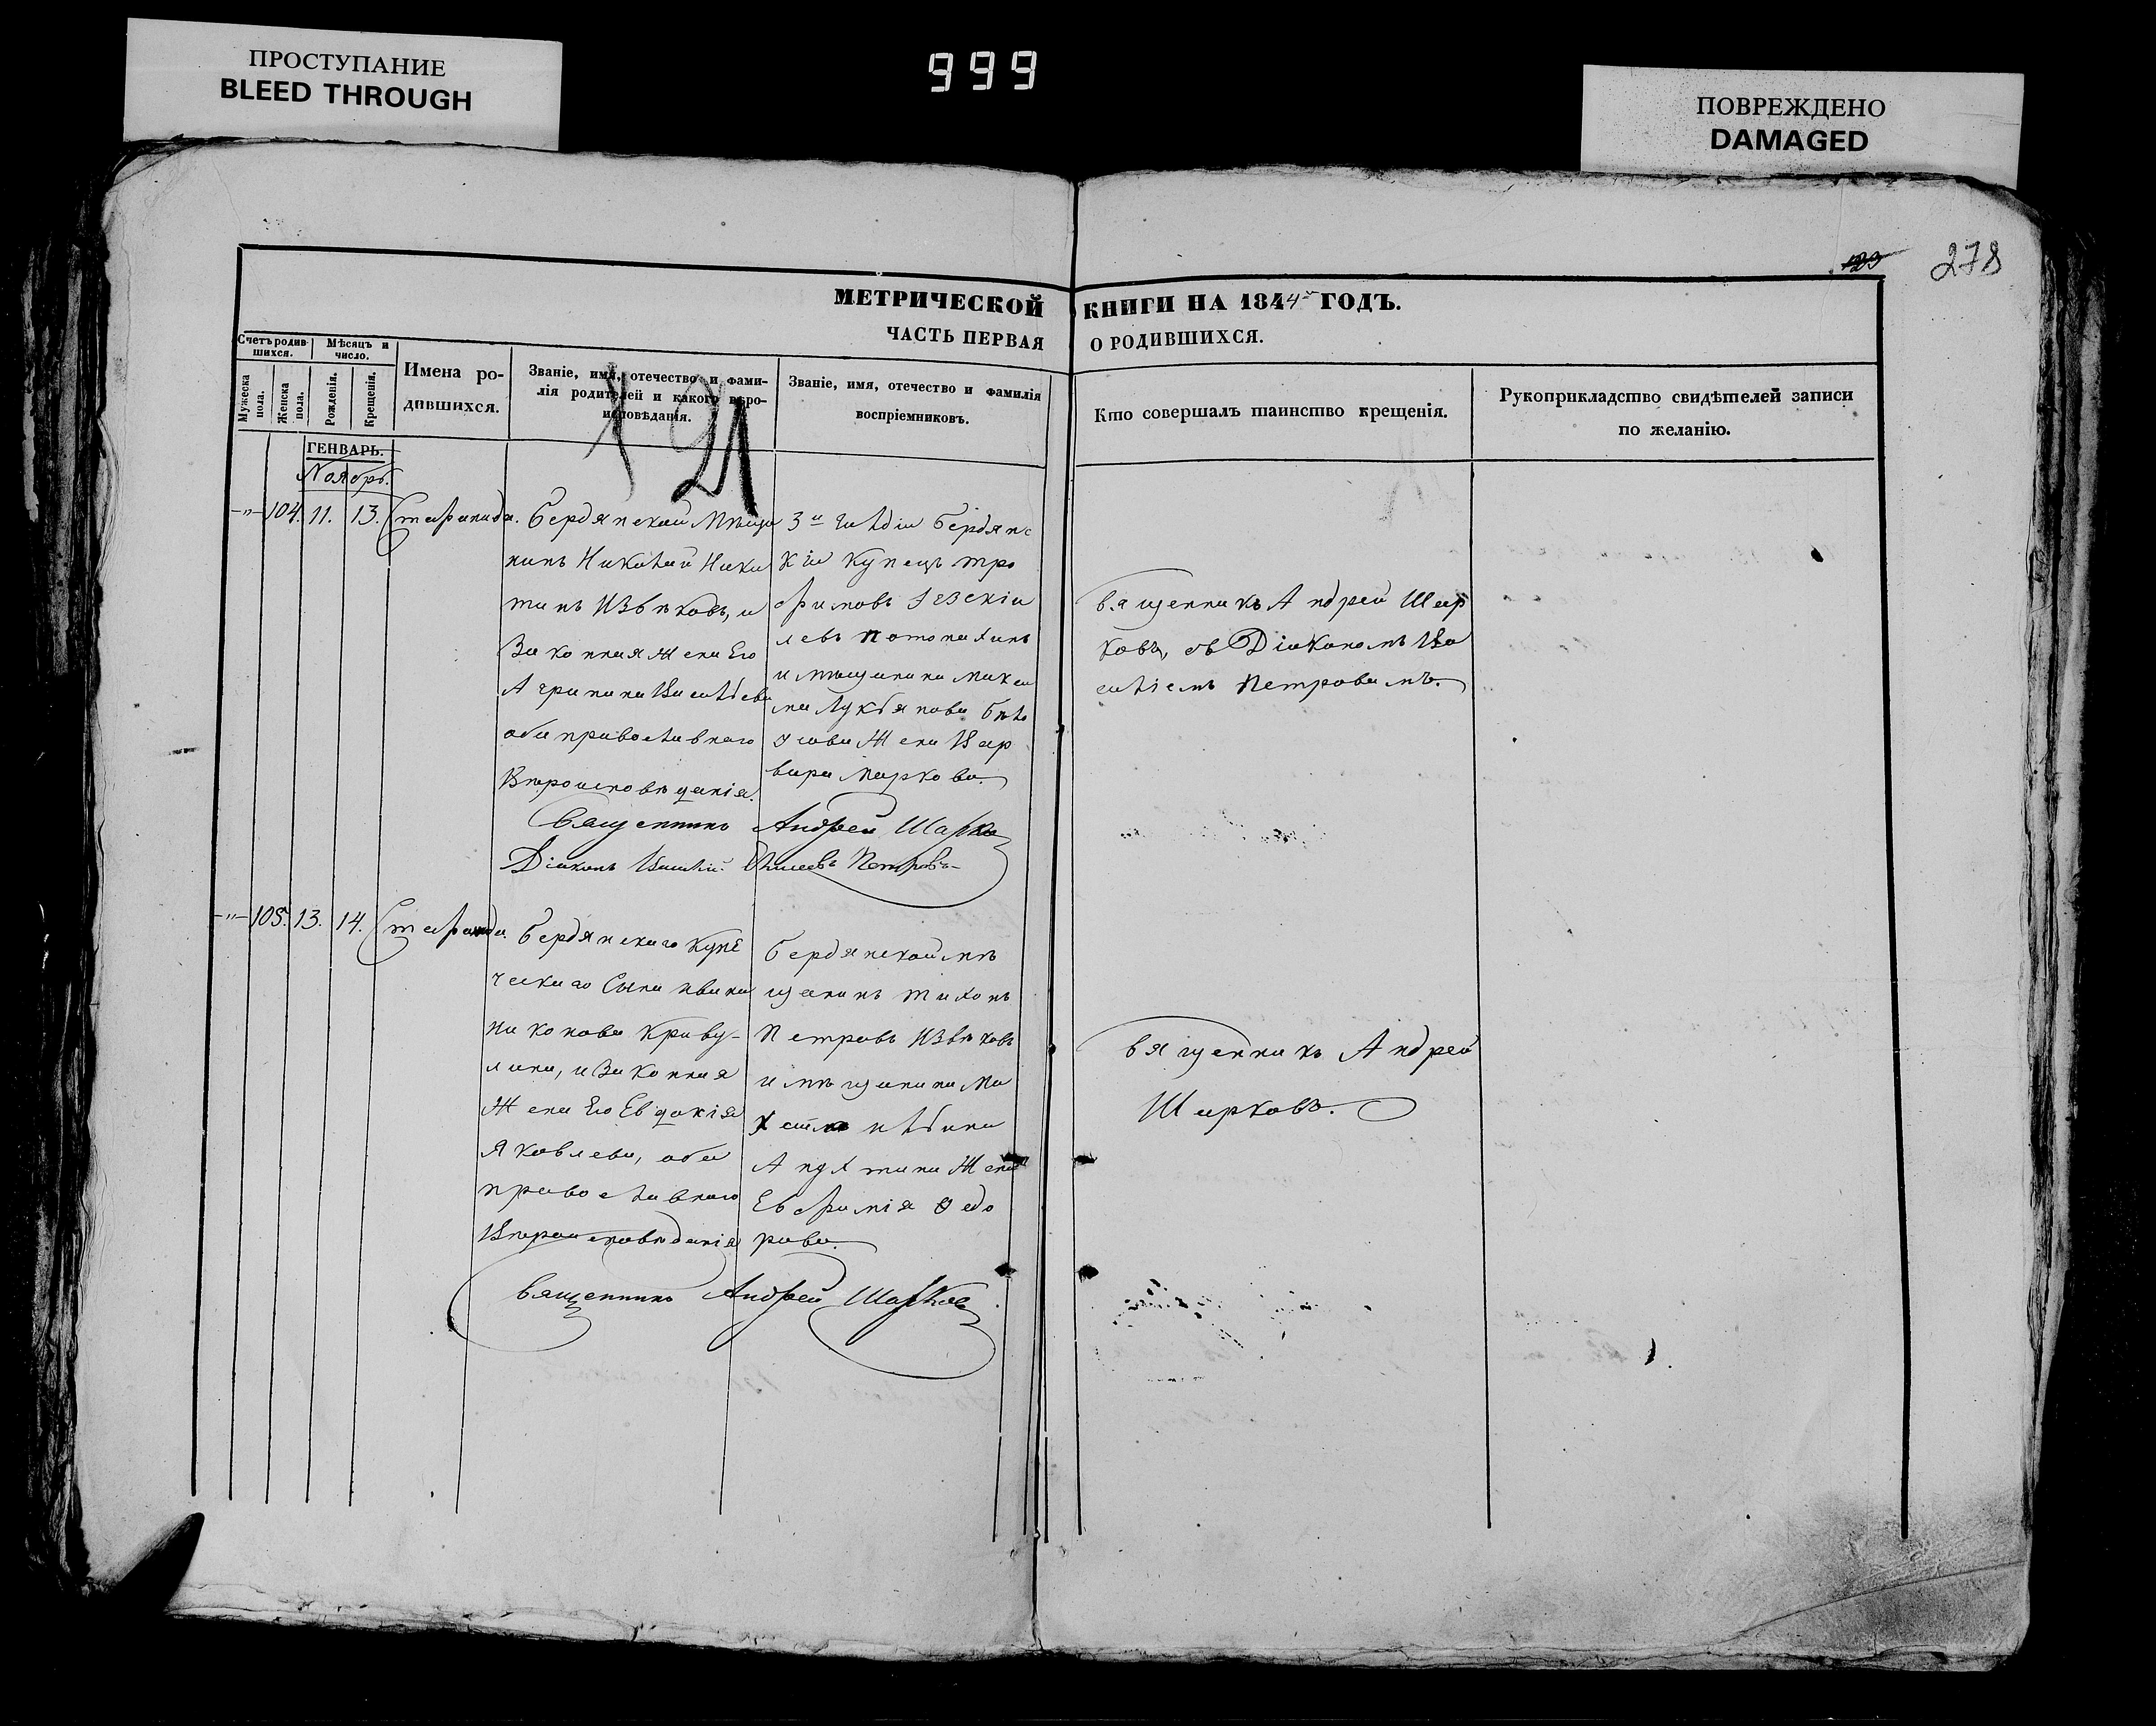 ПРОСТУПАНИЕ
BLEED THROUGH
999
ПОВРЕЖДЕНО
DAMAGED
278
МЕТРИЧЕСКОЙ КНИГИ НА 1844й ГОДЪ.
ЧАСТЬ ПЕРВАЯ О РОДИВШИХСЯ.
Счетъ родив-
шихся.
Мѣсяцъ и
число.
Мужеска
пола.
Женска
пола.
Рожденія.
Крещенія.
Имена ро-
дившихся.
Званіе, имя, отечество и фами-
лія родителей и какого вѣро-
исповѣданія.
Званіе, имя, отечество и фамилія
воспріемниковъ.
Кто совершалъ таинство крещенія.
Рукоприкладство свидѣтелей записи
по желанію.
121
ГЕНВАРЬ.
Ноябрь.
-"- 104. 11. 13. Стефанида.
Бердянский Мѣща
нинъ Николай Ники
тинъ Извѣковъ, и
Законная Жена Его
Агрипина Васильева
оба православнаго
Вѣроисповѣданія.
3й Гильдіи Бердянс
кій Купецъ Тро
фимовъ
и мѣщанина
Лукьянова Бѣло
усова Жена Вар
вара Маркова.
Священникъ Андрей Шар
ковъ, съ Діакономъ Ва
силіемъ Петровымъ.
Священникъ Андрей Шарковъ
Діаконъ Василій Петровъ
-"- 105. 13. 14. Стефанида.
Бердянскаго Купе
ческаго Сына Ивана
Никонова Криву-
лина, и Законная
Жена Его Евдокія
Яковлева, оба
православнаго
Вѣроисповѣданія
Бердянской мѣ
щанинъ Тихонъ
Петровъ Извѣковъ
и мѣщанина Ми
Жена
Евфимія Ѳедо
рова.
Священникъ Андрей
Шарковъ.
Священникъ Андрей Шарковъ